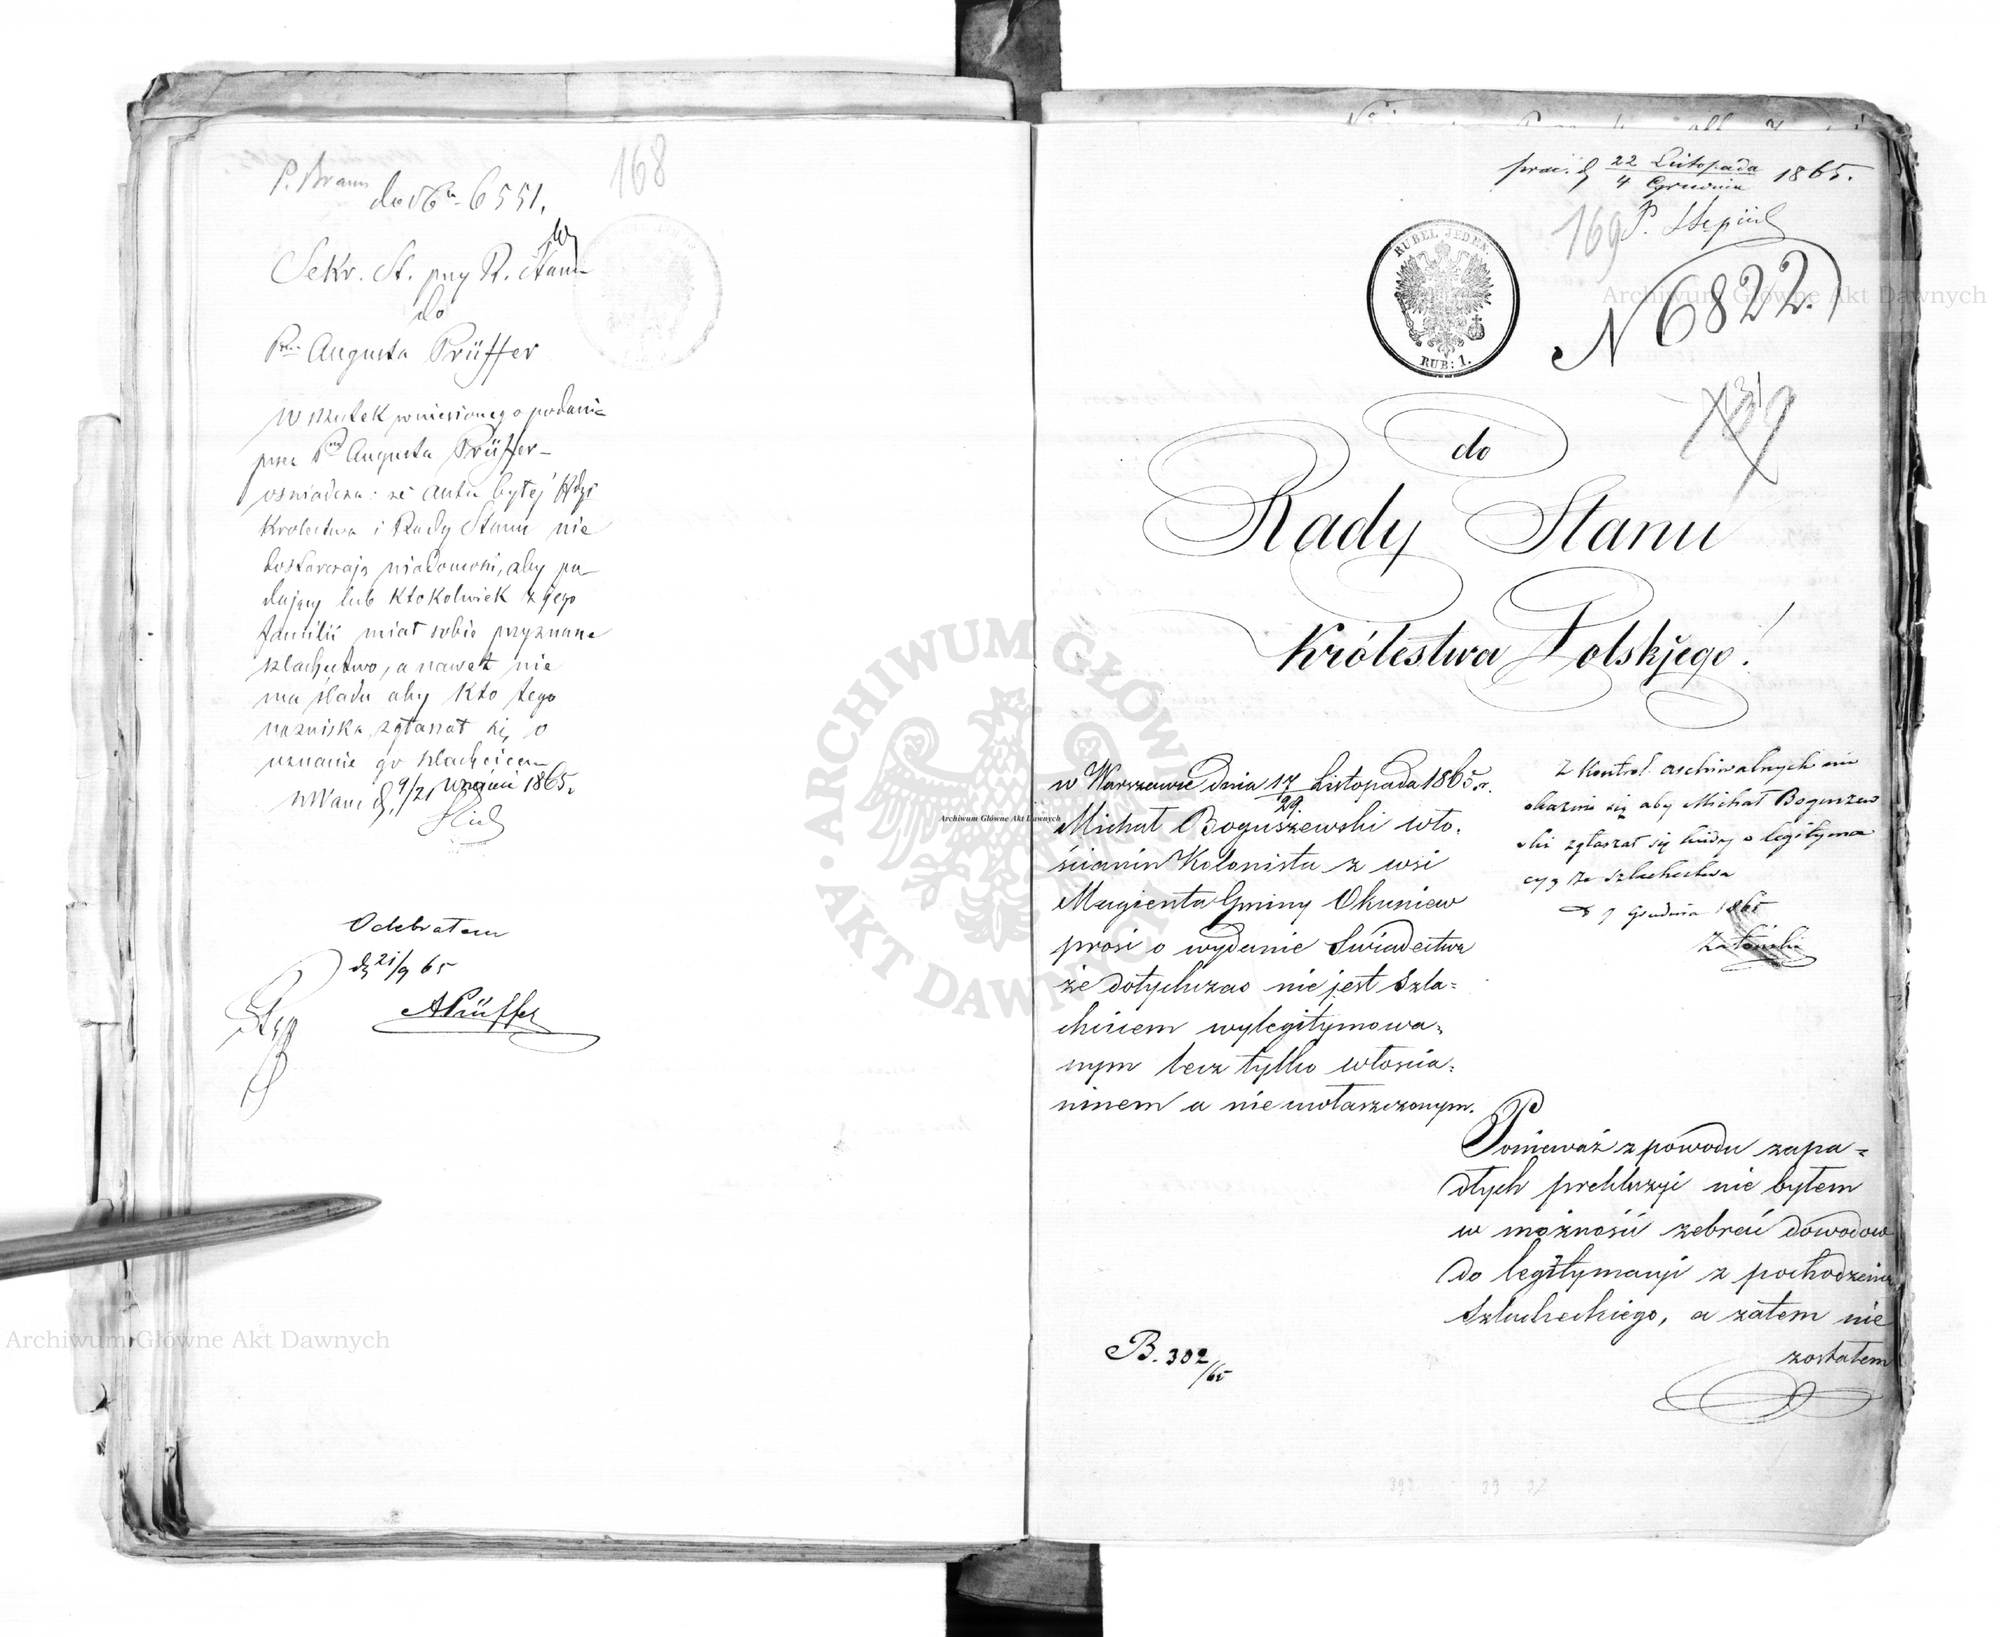 P. Braun
168
do No 6551.
Sekr. St. przy R. Stanu
do
Pna Augusta Prüffer
W skutek wniesionego podania
przez Pna Augusta Prüffer
oświadcza: że akta byłej
Królestwa i Rady Stanu nie
dostarczają wiadomości, aby po-
dający lub ktokolwiek z jego
familii miał sobie przyznane
szlachectwo, a nawet nie
ma śladu aby kto tego
nazwiska zgłaszał się o
uznanie go szlachcicem
w Warsz. d. 9/21 września 1865 r.
Odebrałem
d. 21/9 65
APrüffer
prez. d. 22 Listopada / 4 Grudnia 1865.
169
P. Stępień
RUBEL JEDEN.
RUB: 1.
N 6822.
do
Rady Stanu
Królestwa Polskjego!
w Warszawie dnia 17/29 Listopada 1865 r.
Michał Boguszewski wło-
ścianin Kolonista z wsi
Magienta Gminy Okuniew
prosi o wydanie Swiadectwa
że dotychczas nie jest szla=
chcicem wylegitymowa=
nym lecz tylko włościa=
ninem a nieuwłaszczonym.
Z kontrol archiwalnych nie
okazuie się aby Michał Boguszew
ski zgłaszał się kiedy o legityma
cyą ze szlachectwa
d 9 Grudnia 1865
Ponieważ z powodu zapa=
dłych prekluzyi nie byłem
w możności zebrać dowodow
do legitymacyi z pochodzenia
Szlacheckiego, a zatem nie
zostałem
B. 302/65
Archiwum Główne Akt Dawnych
Archiwum Główne Akt Dawnych
Archiwum Główne Akt Dawnych
ARCHIWUM GŁÓWNE AKT DAWNYCH